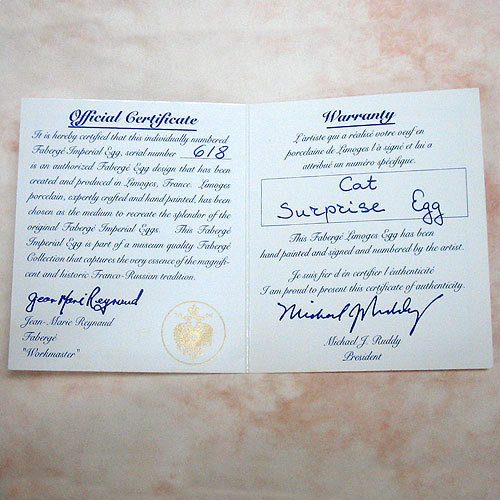 Official Certificate
It is hereby certified that this individually numbered
Fabergé Imperial Egg, serial number 618
is an authorized Fabergé Egg design that has been
created and produced in Limoges, France. Limoges
porcelain, expertly crafted and hand painted, has been
chosen as the medium to recreate the splendor of the
original Fabergé Imperial Eggs. This Fabergé
Imperial Egg is part of a museum quality Fabergé
Collection that captures the very essence of the magnifi-
cent and historic Franco-Russian tradition.
Jean Marie Reynaud
Jean-Marie Reynaud
Fabergé
"Workmaster"
Warranty
L'artiste qui a réalisé votre oeuf en
porcelaine de Limoges l'a signé et lui a
attribué un numéro spécifique.
Cat
Surprise Egg
This Fabergé Limoges Egg has been
hand painted and signed and numbered by the artist.
Je suis fier d'en certifier l'authenticité
I am proud to present this certificate of authenticity.
Michael J Ruddy
Michael J. Ruddy
President